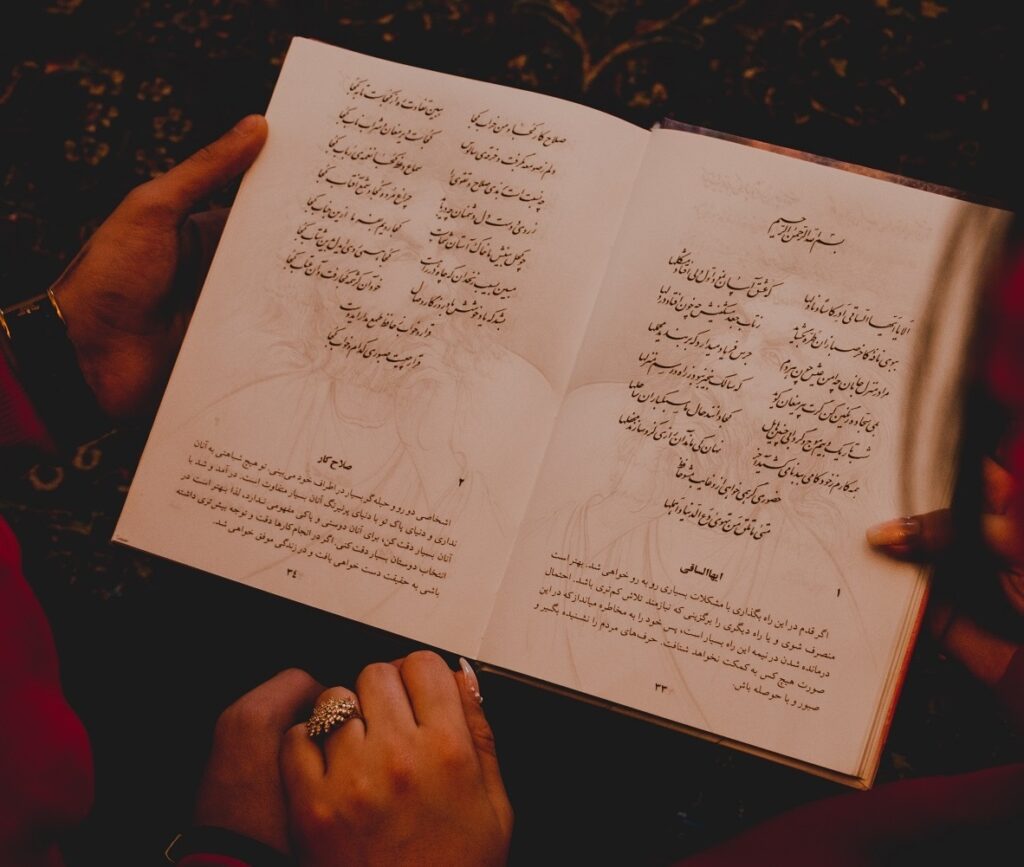 بسم الله الرحمن الرحیم
الا یا ایها الساقی ادر کأسا و ناولها که عشق آسان نمود اول ولی افتاد مشکلها
ببوی نافه کاخر صبا زان طره بگشاید ز تاب جعد مشکینش چه خون افتاد در دلها
مرا در منزل جانان چه امن عیش چون هر دم جرس فریاد میدارد که بربندید محملها
بمی سجاده رنگین کن گرت پیر مغان گوید که سالک بیخبر نبود ز راه و رسم منزلها
شب تاریک و بیم موج و گردابی چنین هایل کجا دانند حال ما سبکباران ساحلها
همه کارم ز خود کامی ببدنامی کشید آخر نهان کی ماند آن رازی کزو سازند محفلها
حضوری گر همی خواهی ازو غایب مشو حافظ
متی ما تلق من تهوی دع الدنیا و اهملها
۱
ایهاالساقی
اگر قدم در این راه بگذاری با مشکلات بسیاری رو به رو خواهی شد. بهتر است
منصرف شوی و یا راه دیگری را برگزینی که نیازمند تلاش کم‌تری باشد. احتمال
درمانده شدن در نیمه این راه بسیار است، پس خود را به مخاطره مینداز که در این
صورت هیچ کس به کمکت نخواهد شتافت. حرف‌های مردم را نشنیده بگیر و
صبور و با حوصله باش.
۳۳
صلاح کار کجا و من خراب کجا ببین تفاوت ره از کجاست تا بکجا
دلم ز صومعه بگرفت و خرقه سالوس کجاست دیر مغان و شراب ناب کجا
چه نسبت است برندی صلاح و تقوی را سماع وعظ کجا نغمه رباب کجا
ز روی دوست دل دشمنان چه دریابد چراغ مرده کجا شمع آفتاب کجا
چو کحل بینش ما خاک آستان شماست کجا رویم بفرما ازین جناب کجا
مبین بسیب زنخدان که چاه در راهست کجا همی روی ای دل بدین شتاب کجا
بشد که یاد خوشش باد روزگار وصال خود آن کرشمه کجا رفت و آن عتاب کجا
قرار و خواب ز حافظ طمع مدار ایدوست
قرار چیست صبوری کدام و خواب کجا
۲
صلاح کار
اشخاصی دورو و حیله گر بسیار در اطراف خود می‌بینی. تو هیچ شباهتی به آنان
نداری و دنیای پاک تو با دنیای پرنیرنگ آنان بسیار متفاوت است. در آمد و شد با
آنان بسیار دقت کن. برای آنان دوستی و پاکی مفهومی ندارد، لذا بهتر است در
انتخاب دوستان بسیار دقت کنی. اگر در انجام کارها دقت و توجه بیش‌تری داشته
باشی به حقیقت دست خواهی یافت و در زندگی موفق خواهی شد.
۳۴